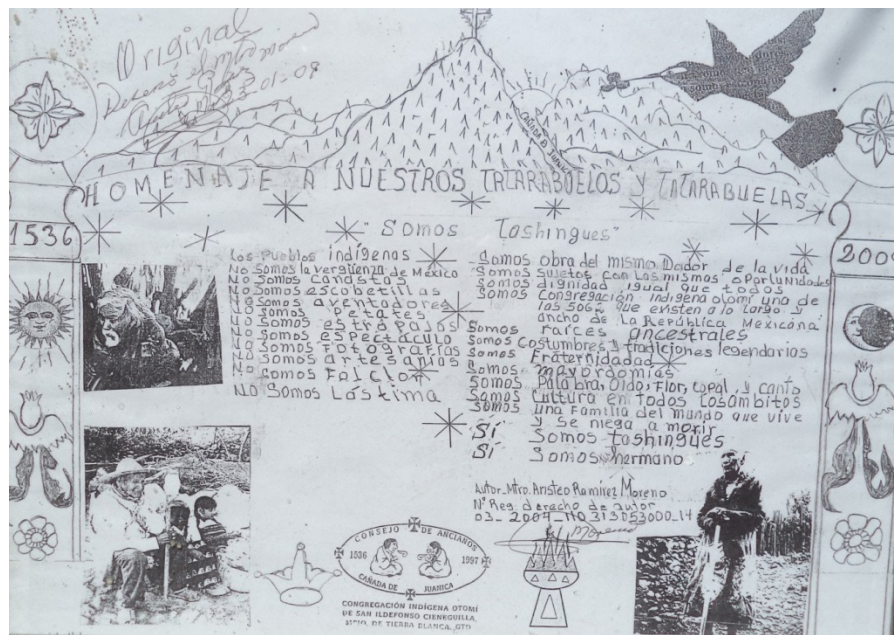 Original
Diseño el Mtro Moreno
01-09
CAÑADA D JUANICA
HOMENAJE A NUESTROS TATARABUELOS Y TATARABUELAS
1536
200
"Somos Tashingues"
Los Pueblos indígenas
No Somos la vergüenza de México
No Somos Canastas
No Somos escobetillas
No Somos aventadores
No Somos Petates
No Somos estropajos
No Somos espectáculo
No Somos Fotografías
No Somos artesanías
No Somos Folclor
No Somos Lástima
Somos obra del mismo Dador de la vida
Somos Sujetos con las mismas oportunidades
Somos dignidad igual que todos
Somos Congregación indígena otomí una de
las 5062 que existen a lo largo y
ancho de La República Mexicana
Somos raíces ancestrales
Somos Costumbres y tradiciones legendarias
Somos Fraternidad
Somos mayordomías
Somos Palabra, Oido, Flor, Copal, y canto
Somos Cultura en todos los ambitos
Somos una Familia del mundo que vive
y se niega a morir
Sí Somos tashingues
Sí Somos hermano
Autor. Mtro. Aristeo Ramírez Moreno
Nº Reg. derecho de autor
03-2004-NO 313053000-14
CONSEJO DE ANCIANOS
1536 1997
CAÑADA DE JUANICA
CONGREGACIÓN INDÍGENA OTOMÍ
DE SAN ILDEFONSO CIENEGUILLA,
MPIO. DE TIERRA BLANCA, GTO